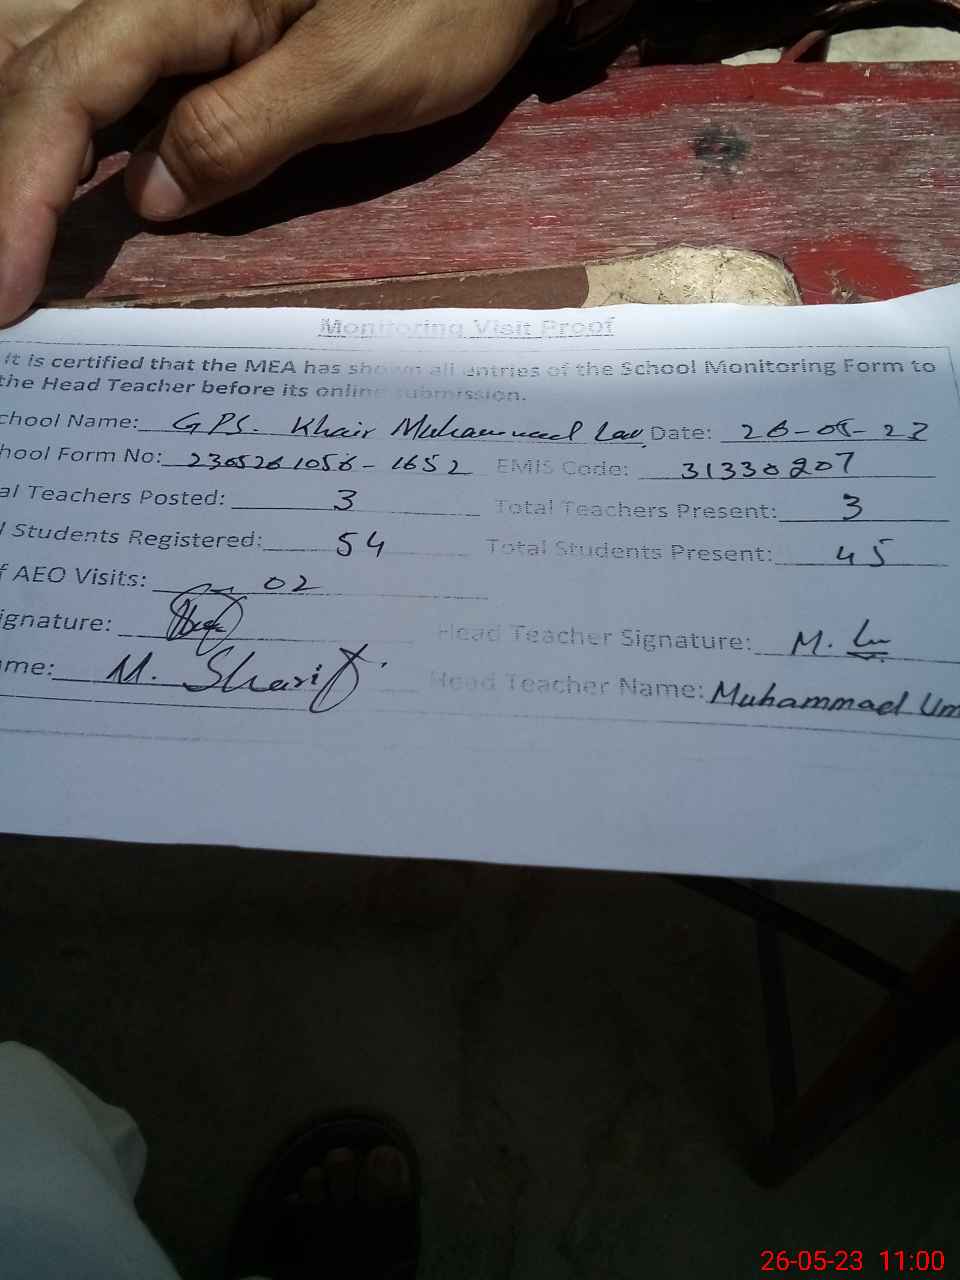 Monitoring Visit Proof
it is certified that the MEA has shown all entries of the School Monitoring Form to
the Head Teacher before its online submission.
chool Name: GPS. Khair Muhammad Lar Date: 26-05-23
hool Form No: 2305261056-1652 EMIS Code: 31330207
al Teachers Posted: 3 Total Teachers Present: 3
l Students Registered: 54 Total Students Present: 45
f AEO Visits: 02
ignature: Head Teacher Signature: M.
me: M. Sharif Head Teacher Name: Muhammad Um
26-05-23 11:00